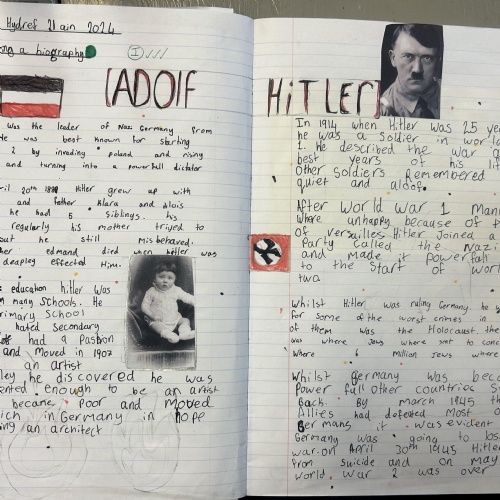 Hydref 21ain 2024
ng a biography
[ADOlF HiTLER]
was the leader of Nazi Germany from
He was best known for starting
2 by invading poland and rising
and turning into a powerfull dictator
ril 20th Hitler grew up with
and father Klara and Alois
he had 5 siblings. his
regularly his mother tryed to
but he still misbehaved.
her edmund died when hitler was
deapley effected Him.
education hitler was
many schools. He
rimary School
hated Secondary
had a Pashion
and moved in 1907
an artist
ley he discovered he was
ented enough to be an artist
became poor and moved
ich in Germany in hope
ing an architect
In 1914 when Hitler was 25 year
he was a soldier in world
1. He described the war a
best years of his lif
Other soldiers Remembered
quiet and aloof.
After world war 1 man
where unhappy because of
of versailles Hitler joined a
Party called the Nazi
and made it powerfall
to the start of wor
two
Whilst Hitler was ruling Germany. he w
for some of the worst crimes in
of them was the Holocaust the
was where Jews where sent to conc
where 6 Million Jews where
Whilst germany was beco
Power full other countries S
back. By march 1945 th
Allies had defeated Most
Germany it was evident
Germany was going to los
war. on April 30th 1945 Hitler
from suicide and on may
world war 2 was over